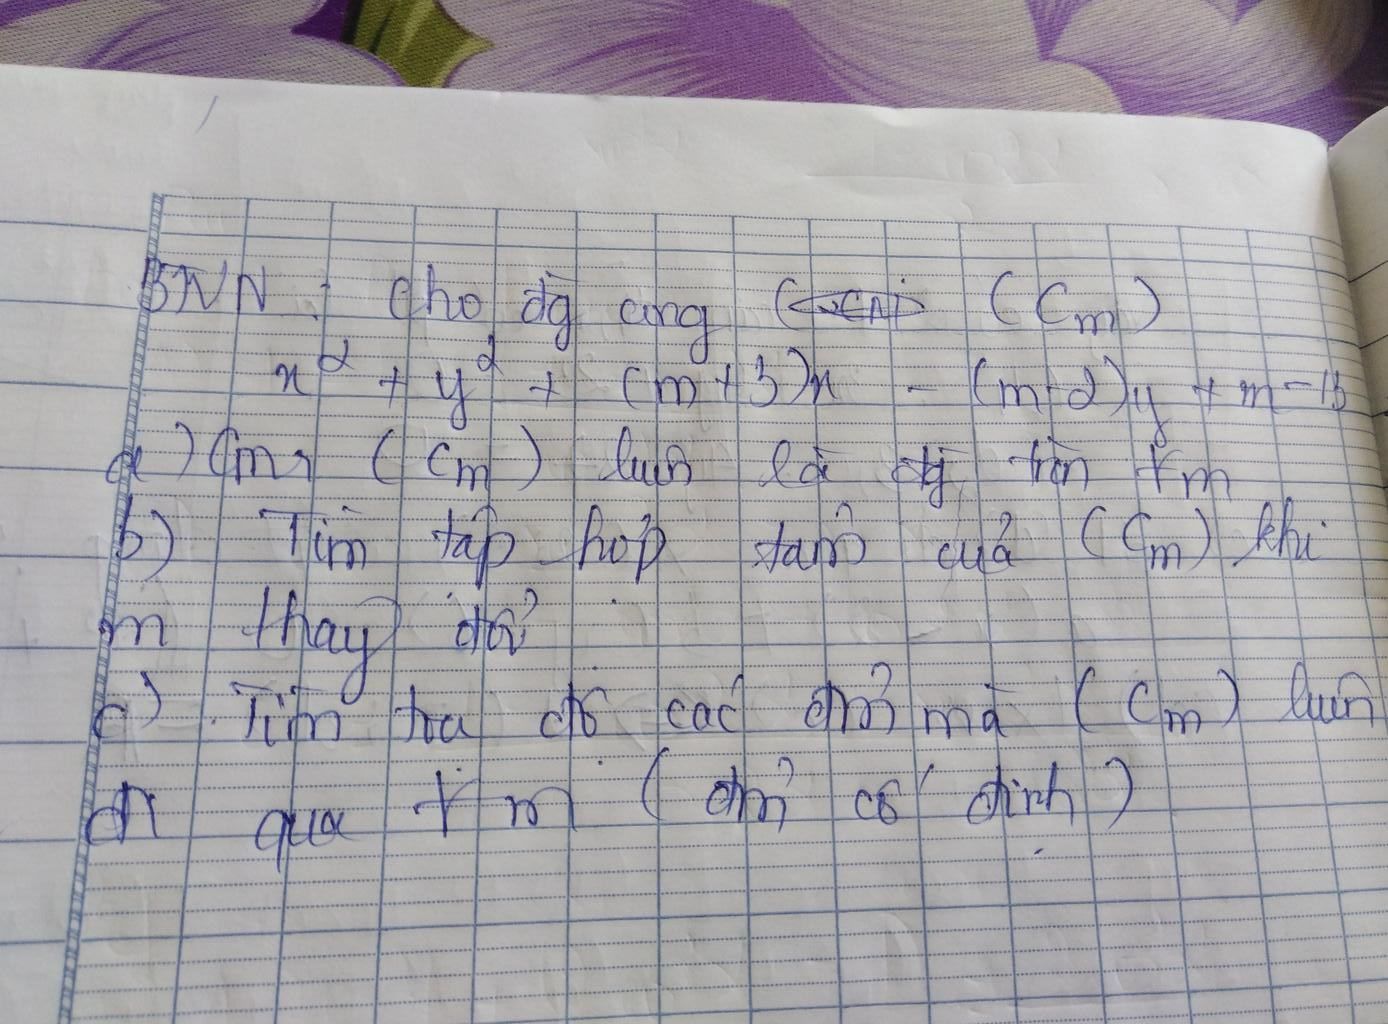 BNN : cho đg cong (Cm)
x² + y² + (m+3)x - (m-2)y + m - 13
a) Cmr (Cm) luôn là đg tròn ∀m
b) Tìm tập hợp tâm của (Cm) khi
m thay đổi
c) Tìm toạ độ các điểm mà (Cm) luôn
đi qua ∀m (điểm cố định)